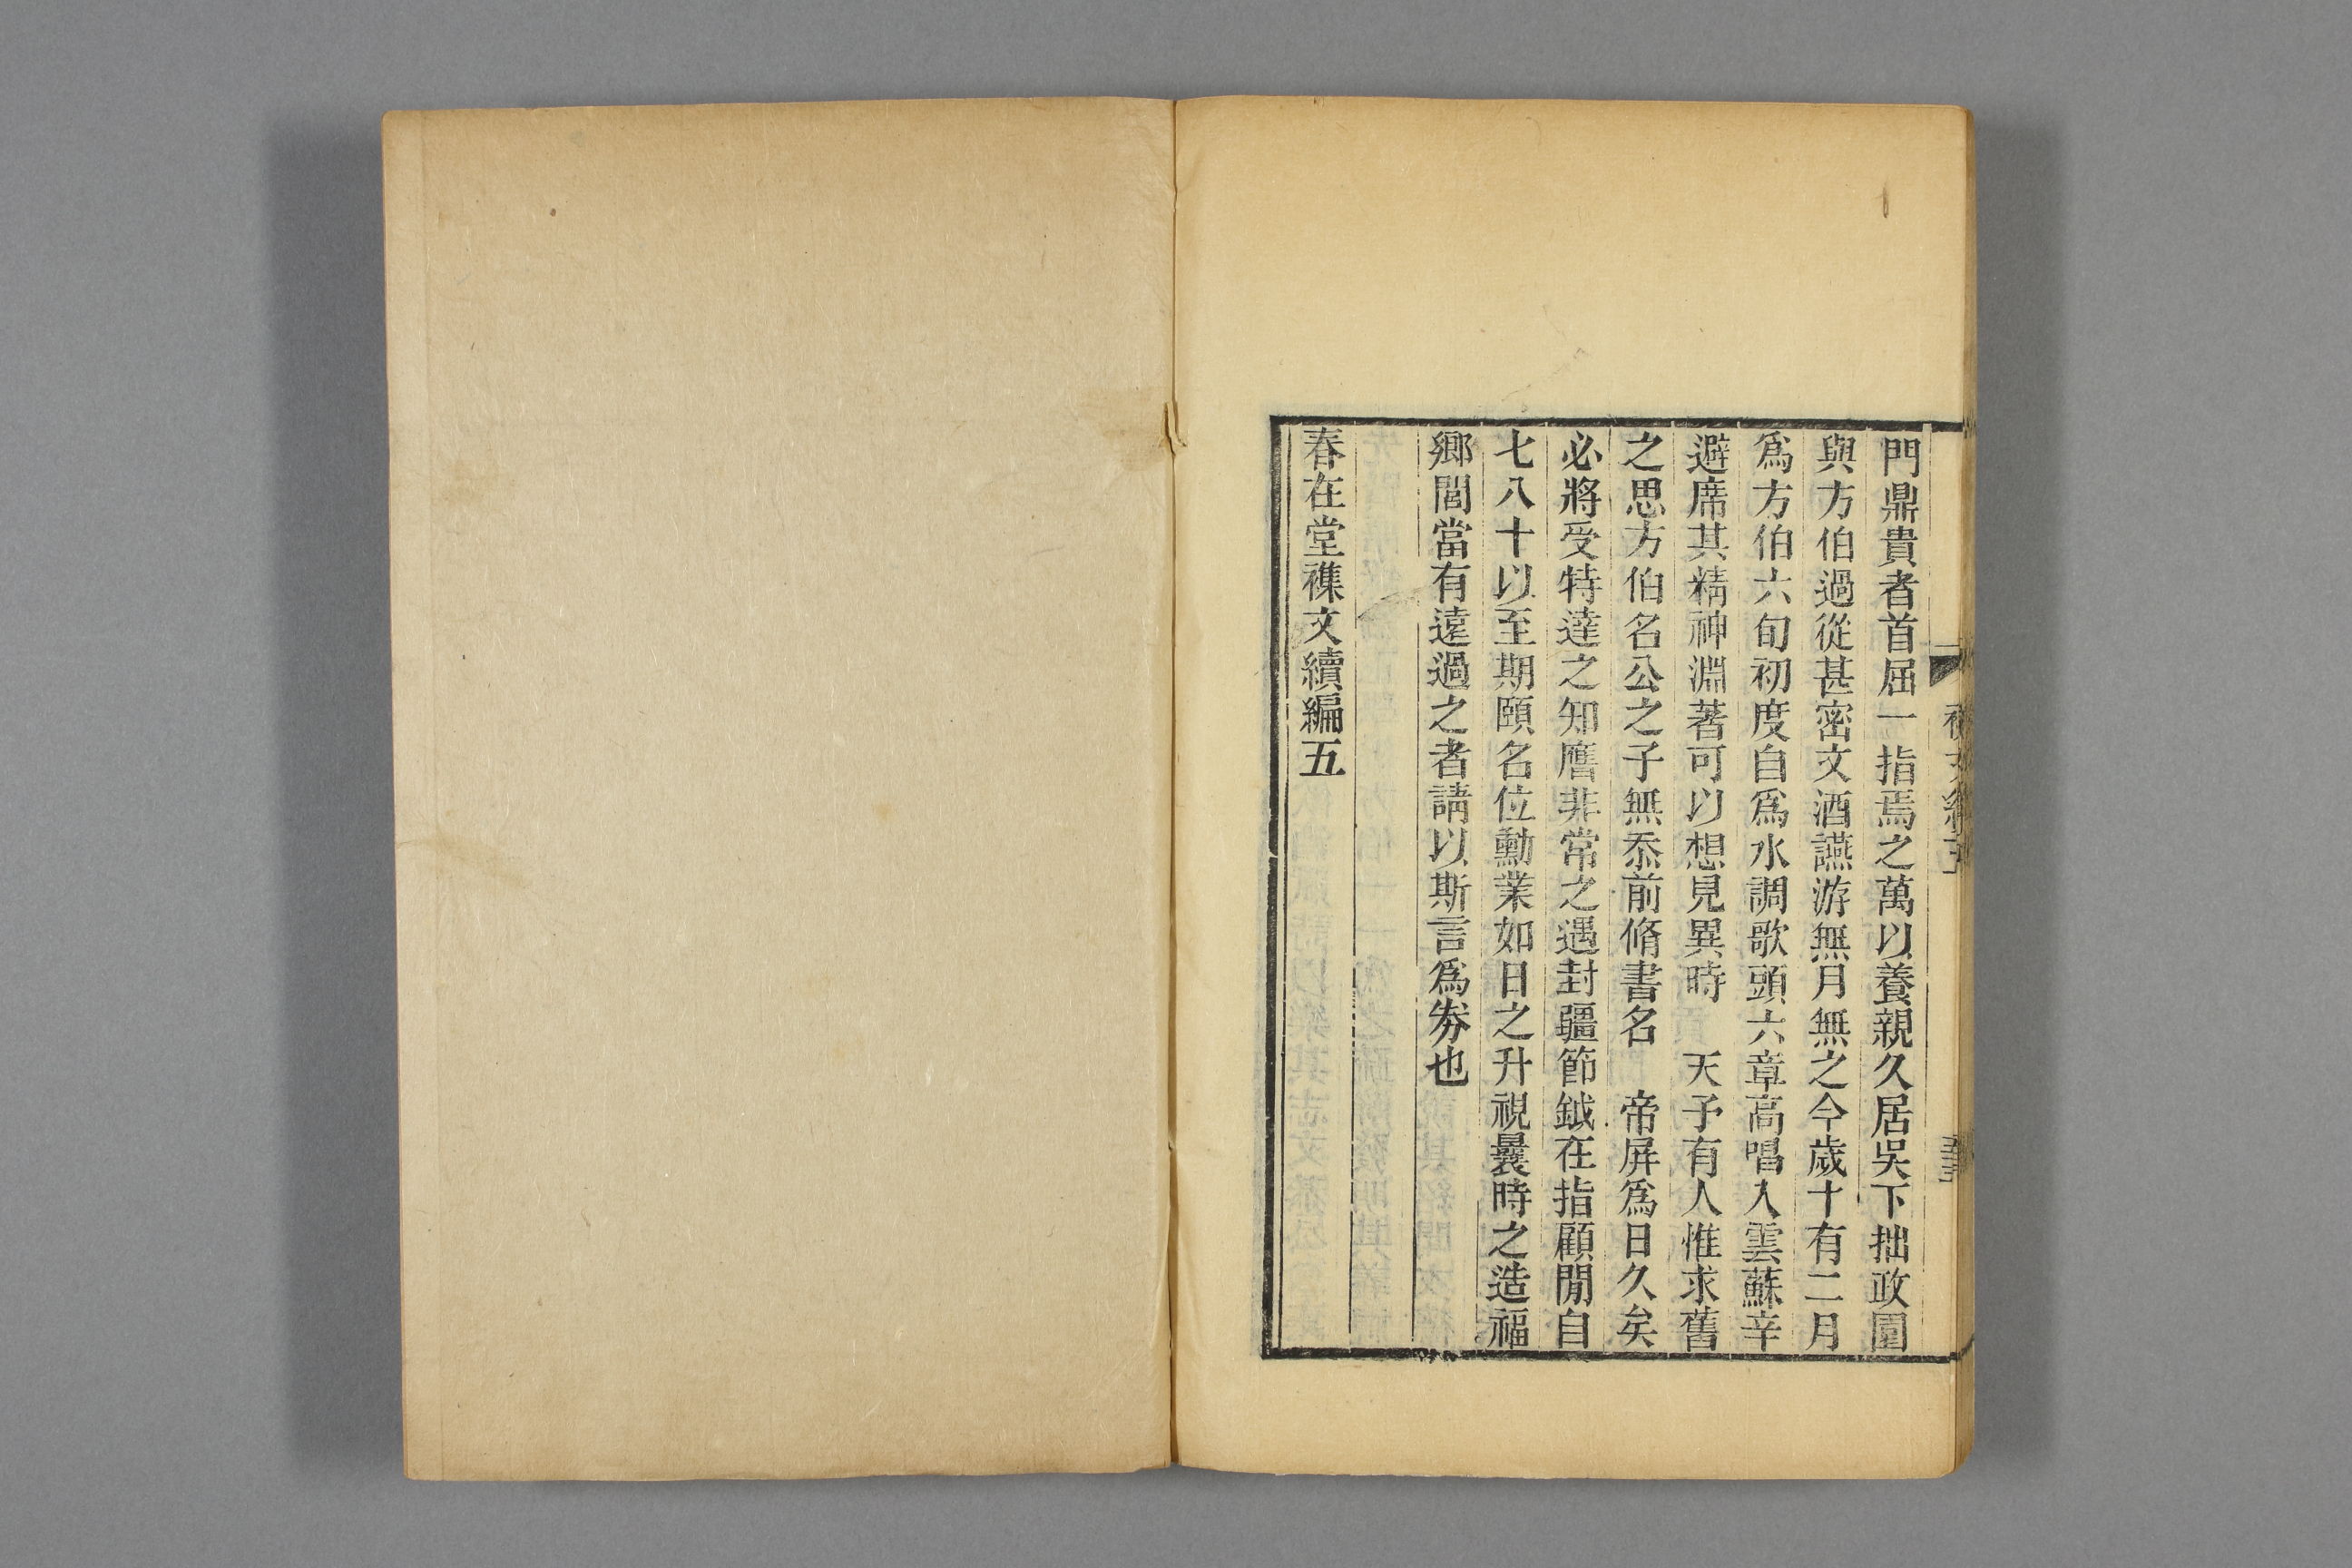 門鼎貴者首屈一指焉之萬以養親久居吳下拙政園
與方伯過從甚密文酒讌游無月無之今歲十有二月
爲方伯六旬初度自爲水調歌頭六章高唱入雲蘇辛
避席其精神淵著可以想見異時　天子有人惟求舊
之思方伯名公之子無忝前脩書名　帝屏爲日久矣
必將受特達之知膺非常之遇封疆節鉞在指顧閒自
七八十以至期頤名位勳業如日之升視曩時之造福
鄉閭當有遠過之者請以斯言爲券也
春在堂襍文續編五